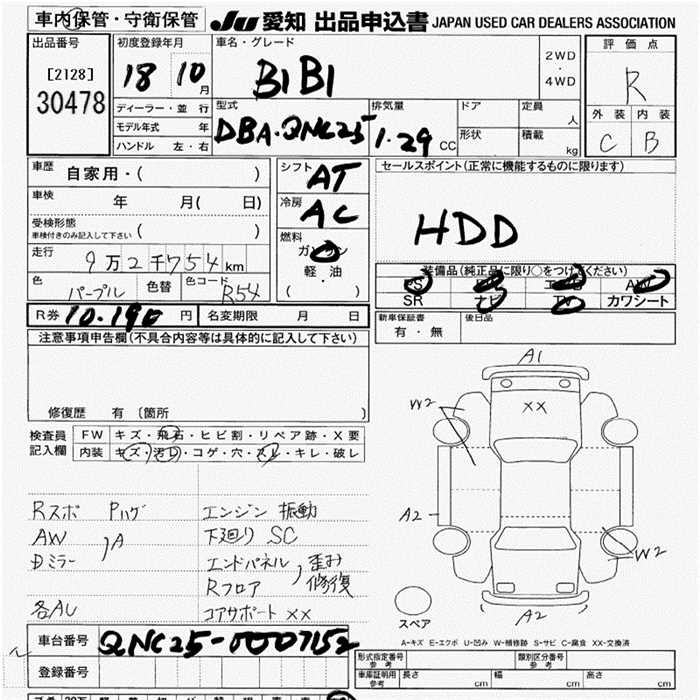 車内保管・守衛保管 JU 愛知 出品申込書 JAPAN USED CAR DEALERS ASSOCIATION
出品番号
[2128]
30478
初度登録年月
18 10月
車名・グレード
BIBI
2WD
・
4WD
評価点
R
外装 内装
C B
ディーラー・並行
モデル年式 年
ハンドル 左・右
型式
DBA・QNC25
排気量
1.29 CC
ドア
形状
定員
人
積載
kg
車歴
自家用・( )
車検
年 月( 日)
受検形態
車検付きのみ記入して下さい ( )
走行
9万2千754km
色
パープル
色替
色コード
R54
シフト
AT
冷房
AC
燃料
ガソリン
軽・油
( )
セールスポイント(正常に機能するものに限ります)
HDD
装備品(純正品に限り○をつけてください)
PS AW
SR ナビ TV カワシート
R券 10.190円
名変期限 月 日
新車保証書
有・無
後日品
注意事項申告欄(不具合内容等は具体的に記入して下さい)
修復歴 有 〔箇所 〕
検査員
記入欄
FW キズ・飛石・ヒビ割・リペア跡・X要
内装 キズ・汚レ・コゲ・穴・スレ・キレ・破レ
Rスポ Pハゲ
AW
Dミラー ,A
各AU
エンジン 振動
下廻り SC
エンドパネル, 歪み
Rフロア 修復
コアサポート ××
A1
W2
××
A2
W2
A2
スペア
A-キズ E-エクボ U-凹み W-補修跡 S-サビ C-腐食 XX-交換済
車台番号
QNC25-0007152
登録番号
形式指定番号
参考
類別区分番号
参考
車庫証明用
参考
長さ cm
幅 cm
高さ cm